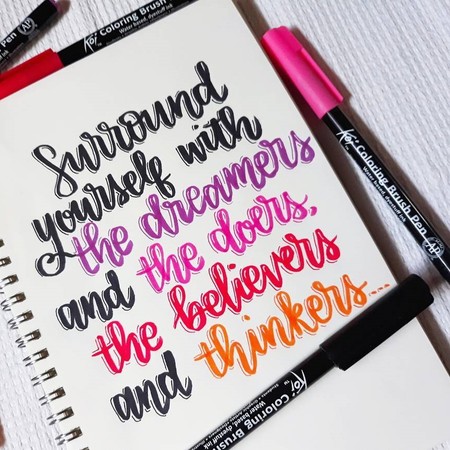 Surround
yourself with
the dreamers
and the doers,
the believers
and thinkers...
Koi Coloring Brush Pen
Water based, dyestuff ink
AP
Koi Coloring Brush
Water based, dyestuff ink
Koi Coloring Brush
Water based, dyestuff ink
Pen
AP